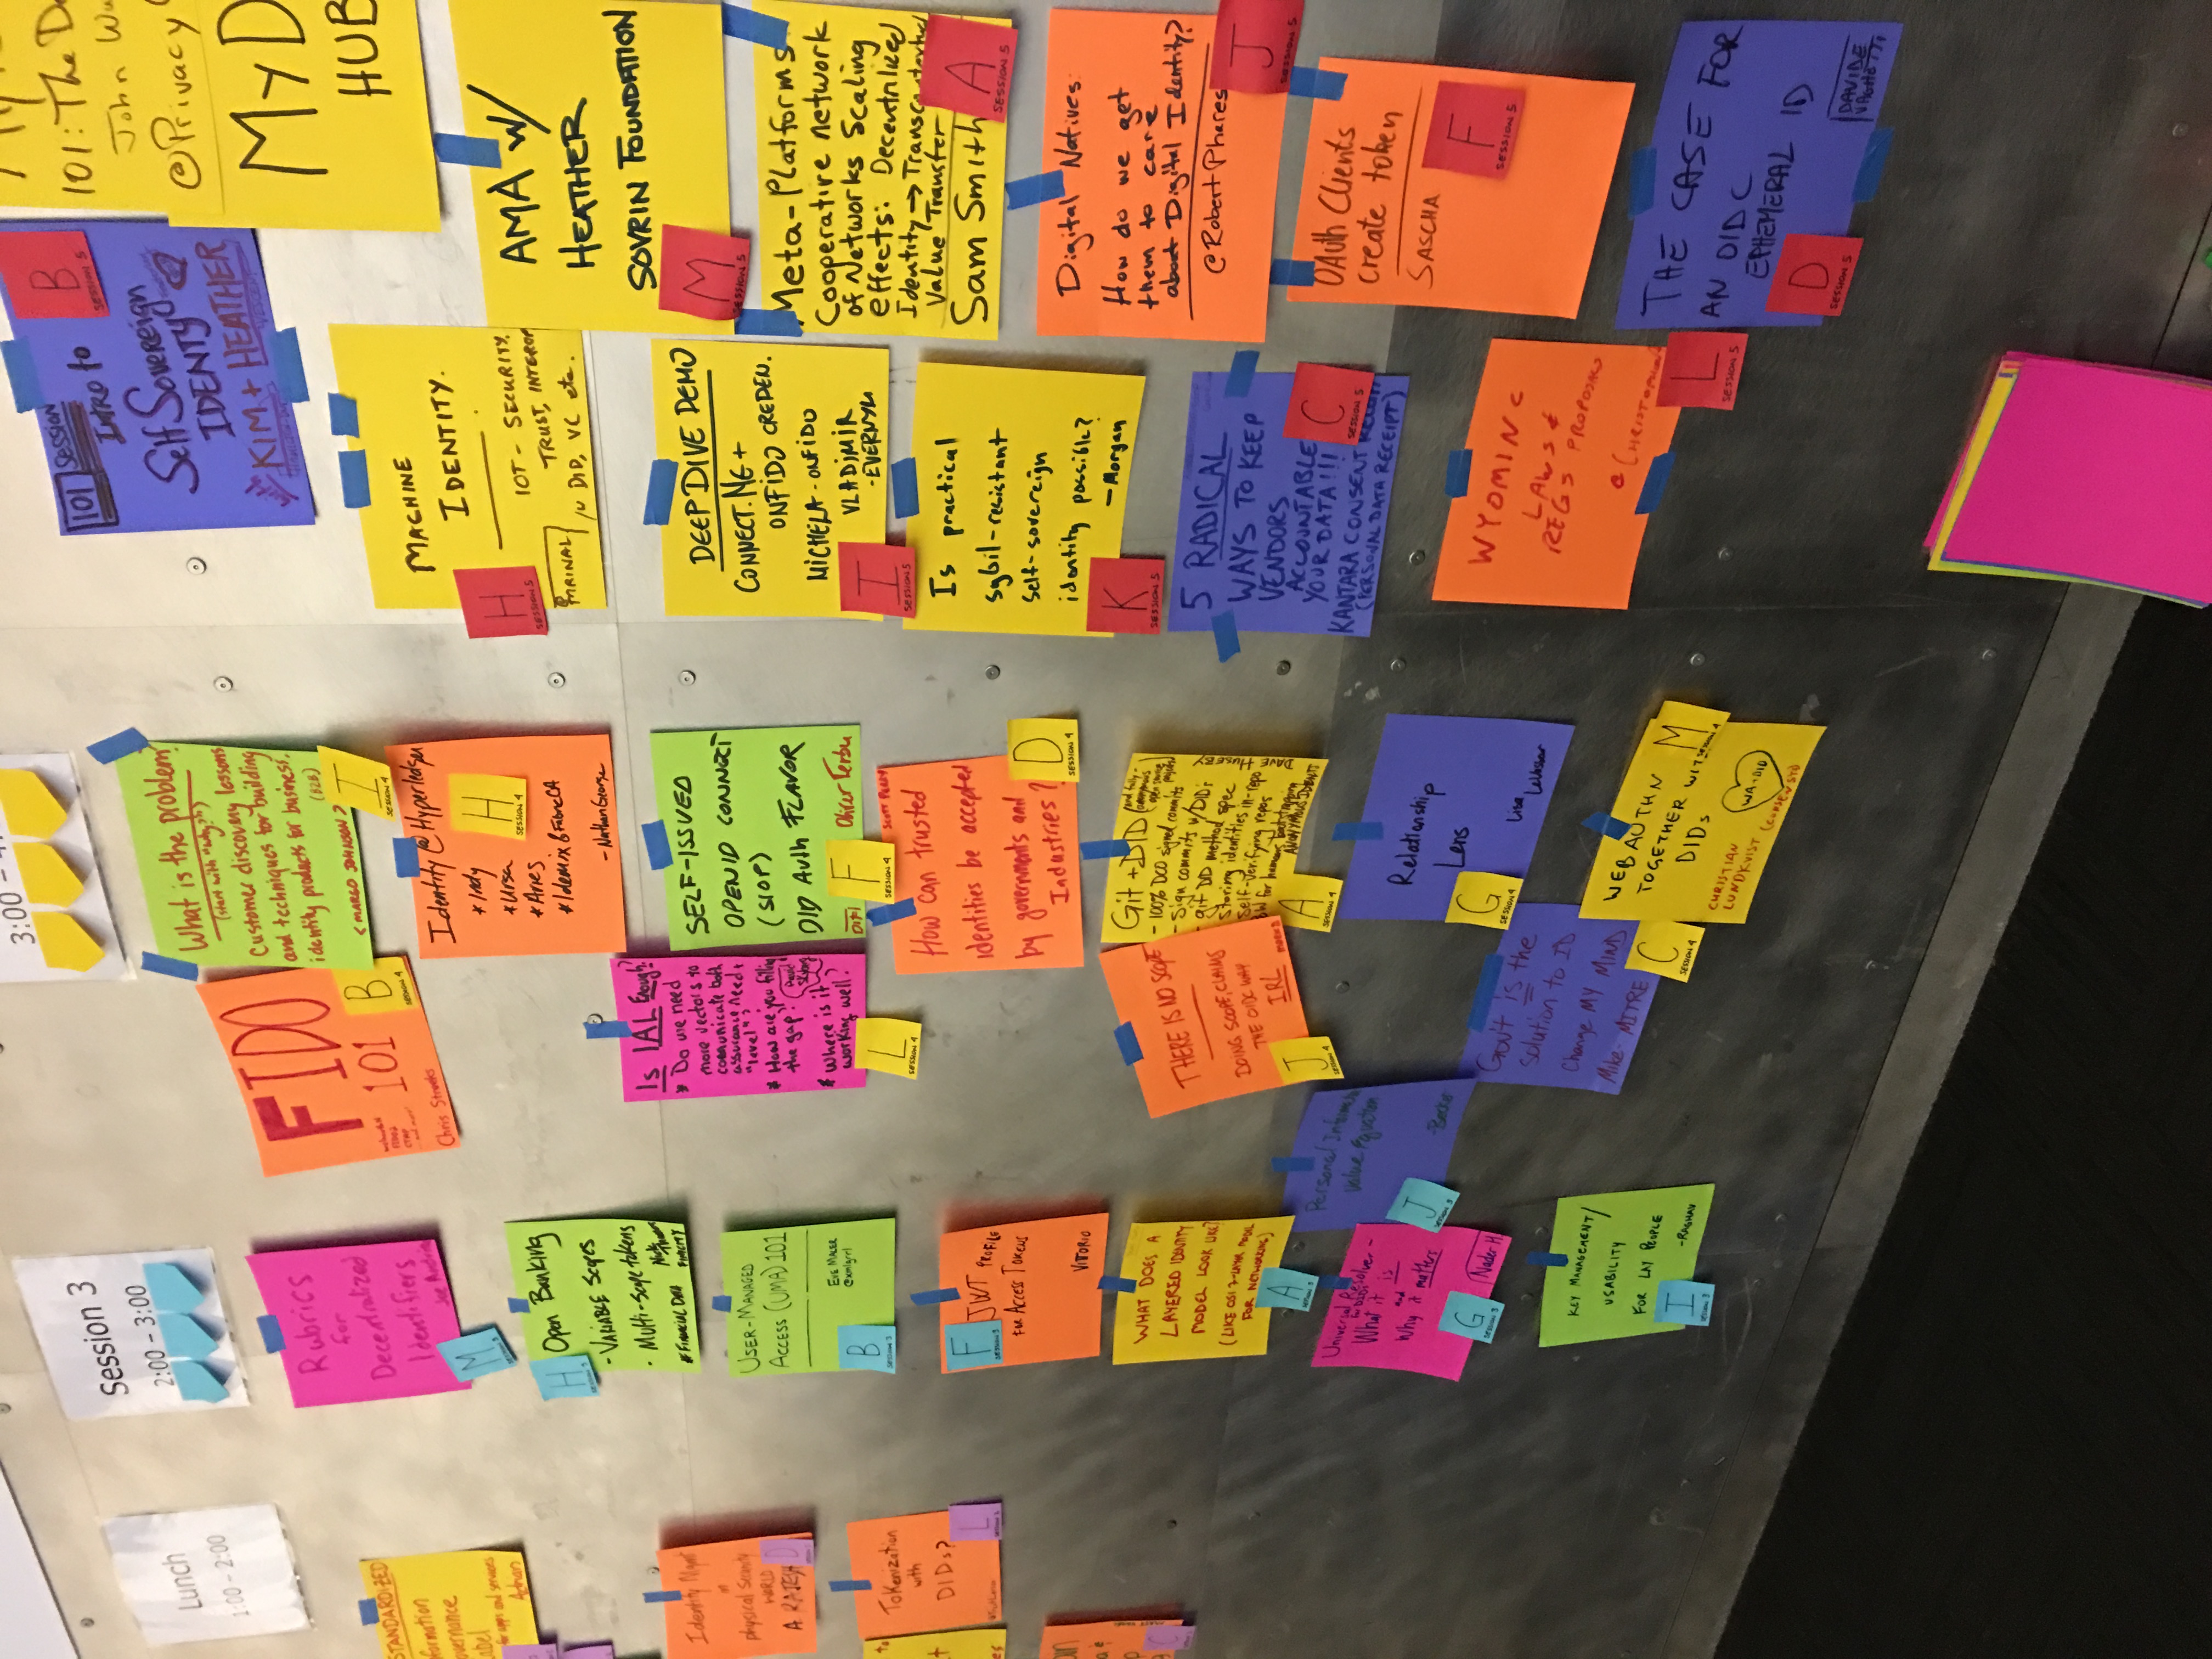 Lunch
1:00 – 2:00
STANDARDIZED
Label
for apps and services
Adrian
Identity Mgmt
in
physical Security
WORLD
A. RAJESH
D
Tokenization
with
DIDs?
L
C
Session 3
2:00 – 3:00
Rubrics
for
Decentralized
Identifiers
Joe Andrieu
M
H
SESSION 3
Open Banking
- VARIABLE Scopes
- Multi-scope tokens
#FINANCIAL DATA
USER-MANAGED
ACCESS (UMA) 101
EVE MALER
@xmlgrrl
B
SESSION 3
F
SESSION 3
JWT PROFILE
FOR ACCESS TOKENS
VITORIO
WHAT DOES A
LAYERED IDENTITY
MODEL LOOK LIKE?
(LIKE OSI 7-LAYER MODEL
FOR NETWORKING)
A
SESSION 3
Universal Resolver -
for DIDs
What it is
and
Why it matters
G
SESSION 3
Nader H.
Personal Information
Value Equation
-Becker
J
SESSION 3
KEY MANAGEMENT/
USABILITY
FOR LAY PEOPLE
-RAGHAV
I
SESSION 3
3:00 –
FIDO
101
B
SESSION 4
What is the problem?
(start with "why?")
Customer discovery lessons
and techniques for building
identity products for business.
(B2B)
<MARGO JOHNSON>
I
SESSION 4
Identity @ Hyperledger
* Indy
* Ursa
* Aries
* Idemix & Fabric CA
- Nathan George
H
SESSION 4
Is IAL Enough?
* Do we need
more vectors to
communicate both
assurance need +
"level"?
* How are you filling
the gap?
* Where is it
working well?
L
SESSION 4
SELF-ISSUED
OPENID CONNECT
(SIOP)
DID Auth FLAVOR
Oliver Terbu
F
SESSION 4
SCOTT PERRY
How can trusted
identities be accepted
by governments and
Industries?
D
SESSION 4
THERE IS NO SCOPE
DOING SCOPE, CLAIMS
THE OIDC WAY
IRL
J
SESSION 4
Git + DID
- 100% DCO signed commits
- Sign commits w/DIDs
- git DID method spec
- Storing identities in-repo
- Self-verifying repos
DAVE HUSEBY
A
SESSION 4
Relationship
Lens
Lisa
LeVasseur
G
SESSION 4
Gov't is the
solution to ID
Change MY MIND
Mike - MITRE
C
SESSION 4
WEBAUTHN
TOGETHER WITH
DIDs
CHRISTIAN
LUNDKVIST (CONSENSYS)
WA+DID
M
SESSION 4
101 Session
INTRO to
Self Sovereign
IDENTY
with KIM + HEATHER
B
SESSION 5
MACHINE
IDENTITY.
IOT - SECURITY,
TRUST, INTEROP
w DID, VC etc.
@MRINAL
H
SESSION 5
DEEP DIVE DEMO
CONNECT.ME +
ONFIDO CREDEN.
MICHELA - ONFIDO
VLADIMIR
- EVERNYM
I
SESSION 5
Is practical
sybil-resistant
self-sovereign
identity possible?
- Morgan
K
SESSION 5
5 RADICAL
WAYS TO KEEP
VENDORS
ACCOUNTABLE
YOUR DATA!!!
KANTARA CONSENT
(PERSONAL DATA RECEIPT)
C
SESSION 5
WYOMING
LAWS &
REGS PROPOSALS
L
SESSION 5
101: The
John
@Privacy
MyD
HUB
AMA w/
HEATHER
SOVRIN FOUNDATION
M
SESSION 5
Meta-Platforms
Cooperative network
of Networks Scaling
effects: Decentralized
Identity → Transcontextual
Value Transfer
Sam Smith
A
SESSION 5
Digital Natives:
How do we get
them to care
about Digital Identity?
@RobertPhares
J
SESSION 5
OAuth Clients
create token
SASCHA
F
SESSION 5
THE CASE FOR
AN OIDC
EPHEMERAL ID
DAVIDE
VAGHETTI
D
SESSION 5